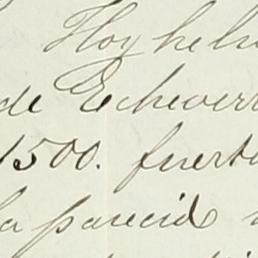 Hoy he
de Echeverr
1500. fuert
ha parecid